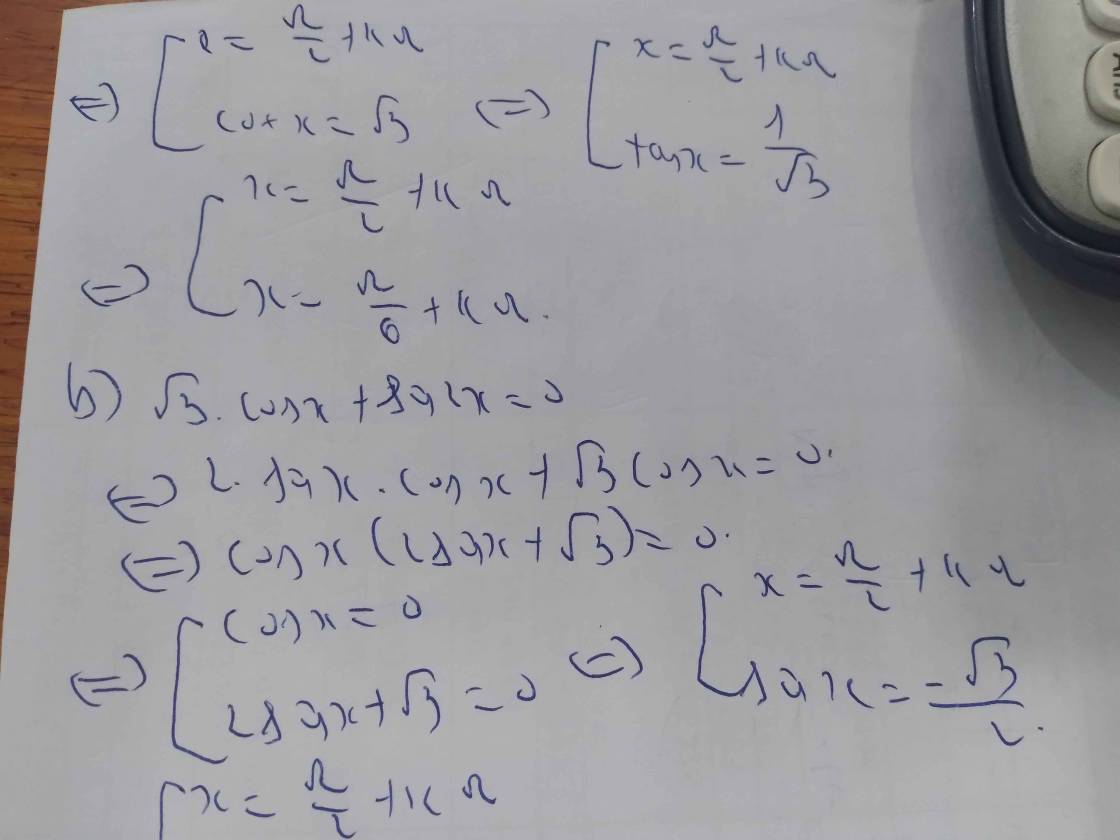 ⇔ [ x = π/2 + kπ
cot x = √3 ⇔ [ x = π/2 + kπ
tan x = 1/√3
⇔ [ x = π/2 + kπ
x = π/6 + kπ.
b) √3. cos x + sin 2x = 0
⇔ 2. sin x . cos x + √3 cos x = 0.
⇔ cos x (2 sin x + √3) = 0.
⇔ [ cos x = 0
2 sin x + √3 = 0 ⇔ [ x = π/2 + kπ
sin x = -√3/2.
[ x = π/2 + kπ